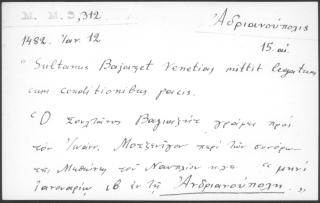 M. M. 3,312
Ἀδριανούπολις
1482. Ἰαν. 12
15. αἰ.
"Sultanus Bajazet Venetias mittit legatum
cum conditionibus pacis.
"Ὁ Σουλτᾶνος Βαγιαζὴτ γράφει πρὸς
τὸν Ἰωάν. Μοτζενῖγον περὶ τῶν συνόρων
τῆς Μεθώνης τοῦ Ναυπλίου κτλ. "μηνὶ
ἰαννουαρίῳ ιβ ἐν τῇ Ἀνδριανούπολῃ."